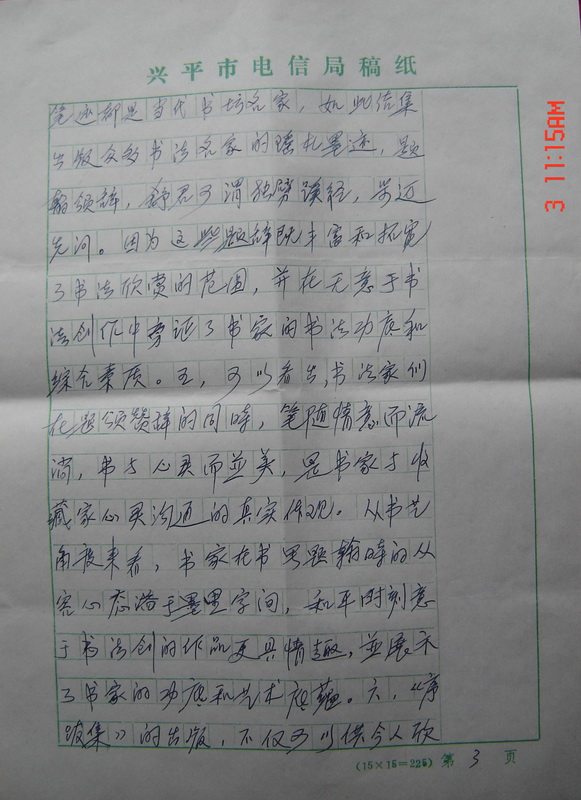 兴平市电信局稿纸
笔迹都是当代书坛名家，如此结集
出版众多书法名家的瑶札墨迹，题
翰颂辞，静君可谓独劈蹊径，
先河。因为这些题辞既丰富和拓宽
了书法欣赏的范围，并在无意于书
法创作中旁证了书家的书法功底和
综合素质。五，可以看出，书法家们
在题颂赞辞的同时，笔随情意而流
淌，书与心灵而並美，是书家与收
藏家心灵沟通的真实体现。从书艺
角度来看，书家在书写题翰时的从
容心态溶于墨里字间，和平时刻意
于书法创的作品更具情趣，並展示
了书家的功底和艺术底蕴。六，《序
跋集》的出版，不仅可以供今人欣
(15×15=225) 第 3 页
3 11:15AM